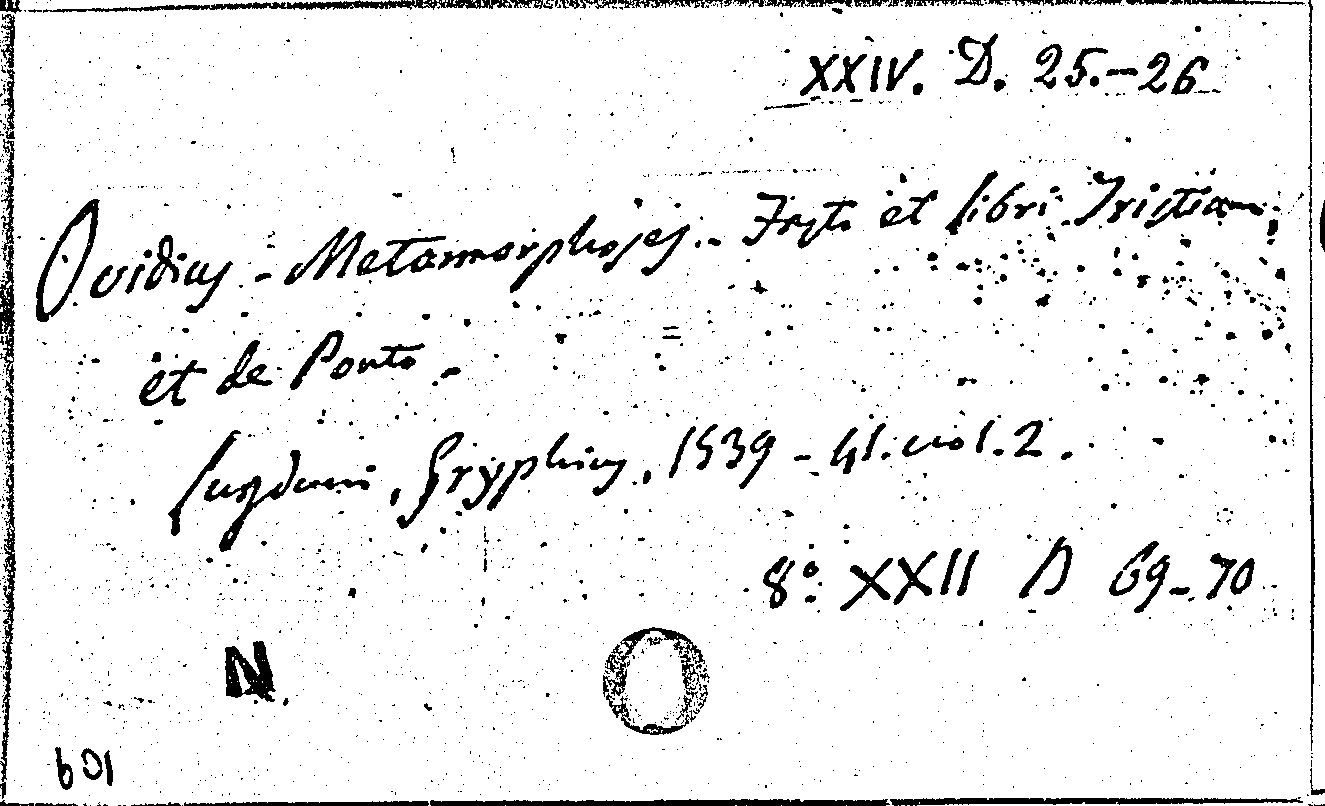 XXIV. D. 25.-26
Ovidius - Metamorphoses.- Fasti et libri Tristium,
et de Ponto -
Lugduni, Gryphius, 1539 - 41. vol. 2.
8º: XXII D 69-70
N.